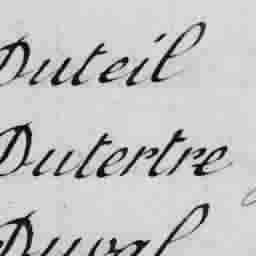 Duteil
Dutertre
Duval